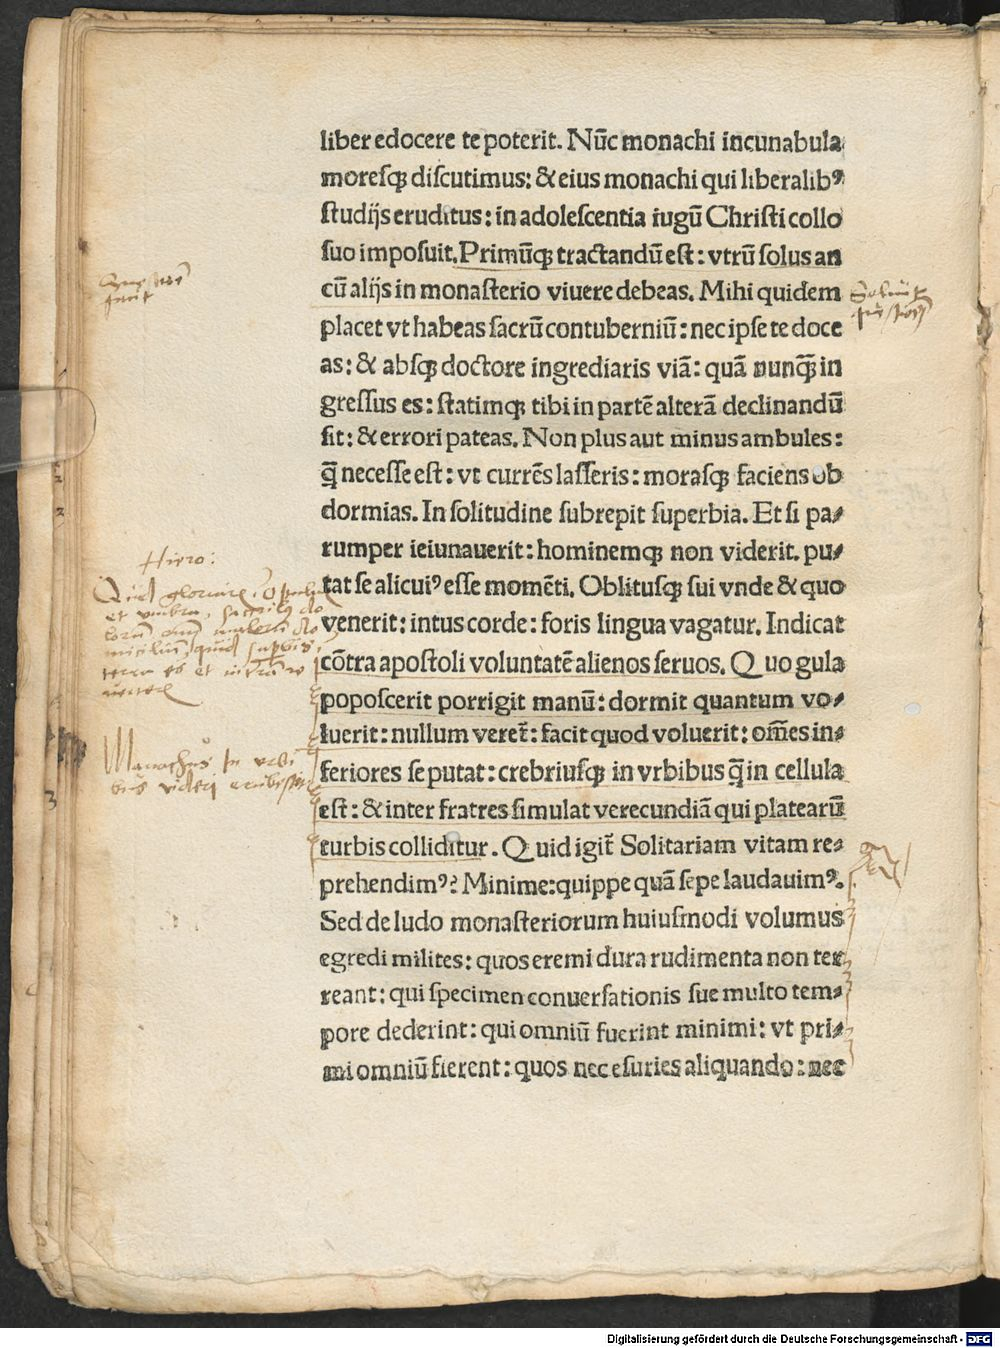 liber edocere te poterit. Nūc monachi incunabula
moresqꝫ discutimus: & eius monachi qui liberalibꝰ
studijs eruditus: in adolescentia iugū Christi collo
suo imposuit. Primūqꝫ tractandū est: vtrū solus an
cū alijs in monasterio viuere debeas. Mihi quidem
placet vt habeas sacrū contuberniū: nec ipse te doce
as: & absqꝫ doctore ingrediaris viā: quā nunqꝫ̄ in
gressus es: statimqꝫ tibi in partē alterā declinandū
sit: & errori pateas. Non plus aut minus ambules:
q̄ necesse est: vt currēs lasseris: morasqꝫ faciens ob
dormias. In solitudine subrepit superbia. Et si pa⸗
rumper ieiunauerit: hominemqꝫ non viderit. pu⸗
tat se alicuiꝰ esse momēti. Oblitusqꝫ sui vnde & quo
venerit: intus corde: foris lingua vagatur. Indicat
cōtra apostoli voluntatē alienos seruos. Quo gula
poposcerit porrigit manū: dormit quantum vo⸗
luerit: nullum veret̄: facit quod voluerit: om̄es in⸗
feriores se putat: crebriusqꝫ in vrbibus q̄ in cellula
est: & inter fratres simulat verecundiā qui platearū
turbis colliditur. Quid igit̄ Solitariam vitam re⸗
prehendimꝰ? Minime: quippe quā sepe laudauimꝰ.
Sed de ludo monasteriorum huiusmodi volumus
egredi milites: quos eremi dura rudimenta non ter
reant: qui specimen conuersationis sue multo tem⸗
pore dederint: qui omniū fuerint minimi: vt pri⸗
mi omniū fierent: quos nec esuries aliquando: nec
Hiero:
Monachus in vrbi
Digitalisierung gefördert durch die Deutsche Forschungsgemeinschaft - DFG